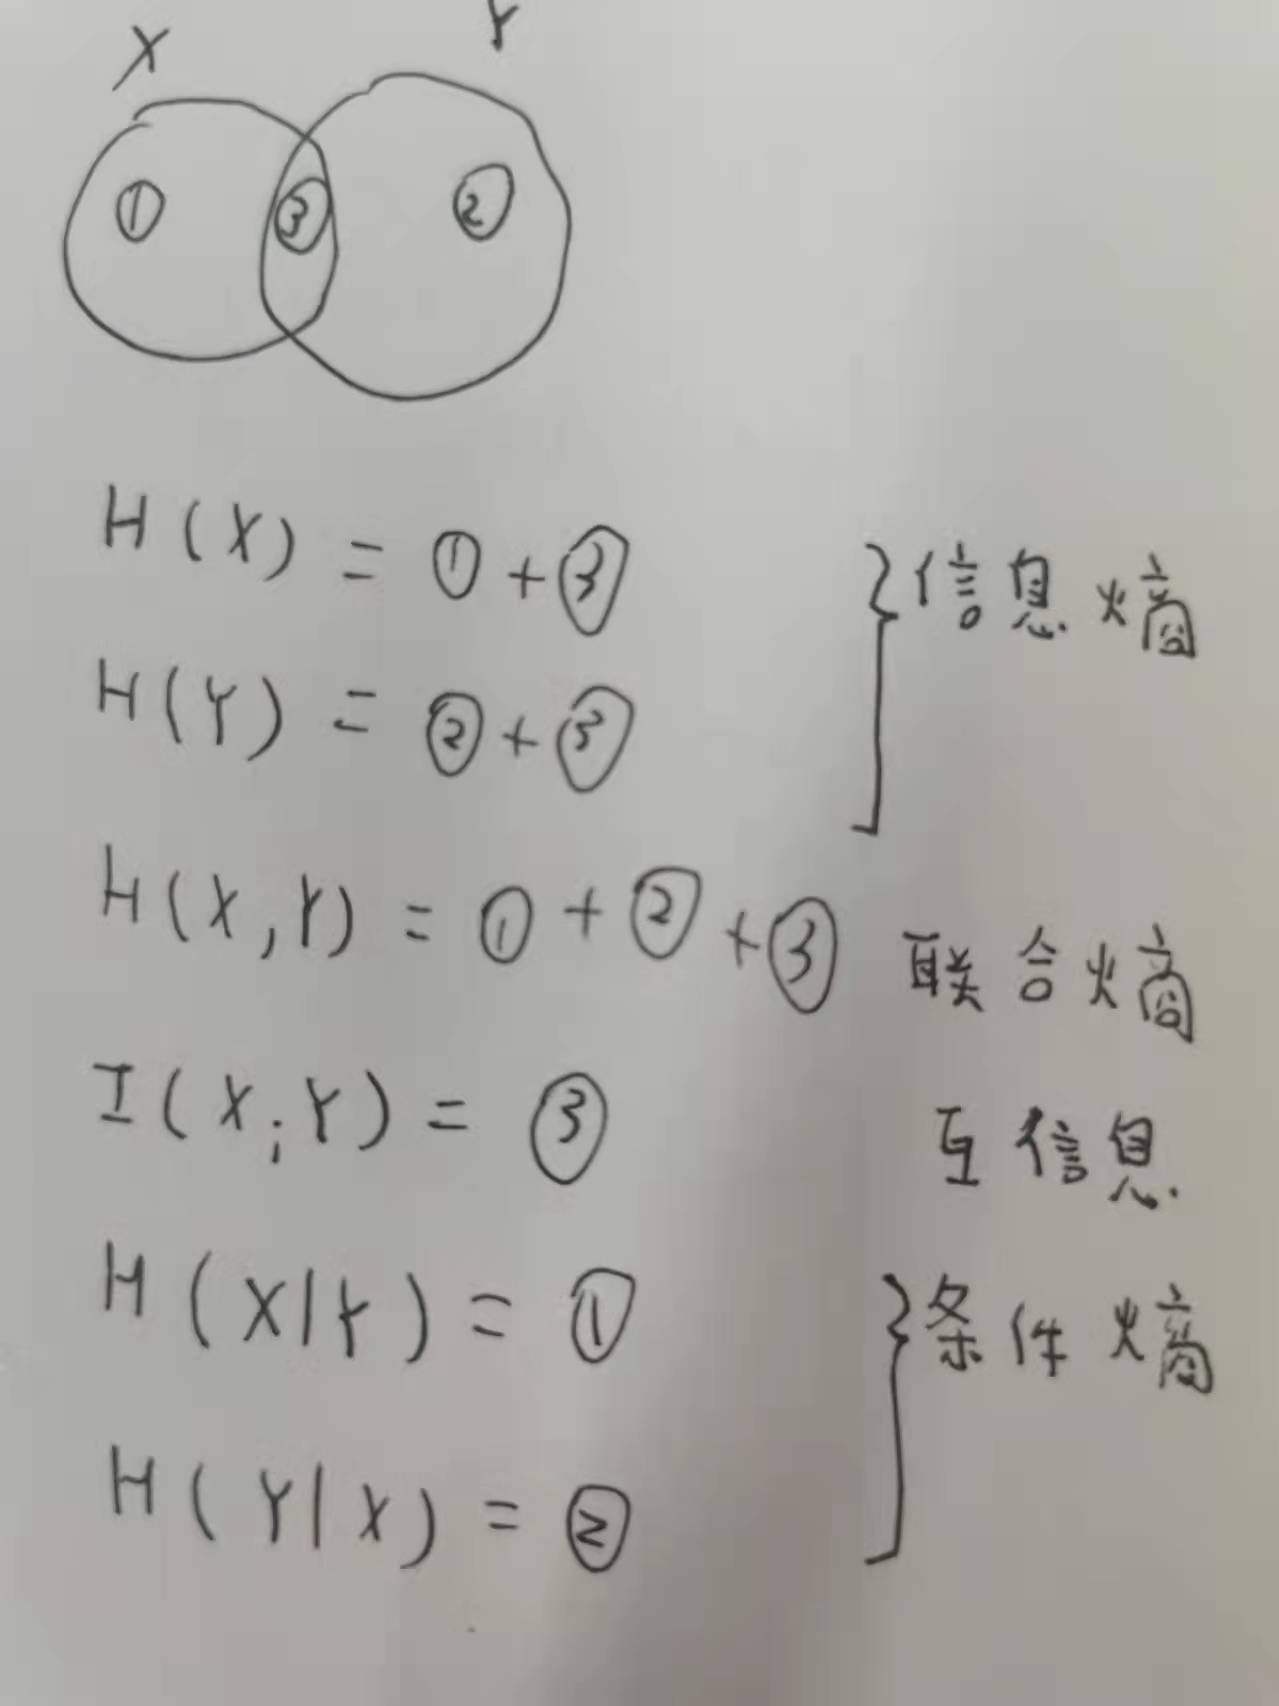 X Y
① ③ ②
H(X) = ① + ③ } 信息熵
H(Y) = ② + ③
H(X,Y) = ① + ② + ③ 联合熵
I(X;Y) = ③ 互信息
H(X|Y) = ① } 条件熵
H(Y|X) = ②